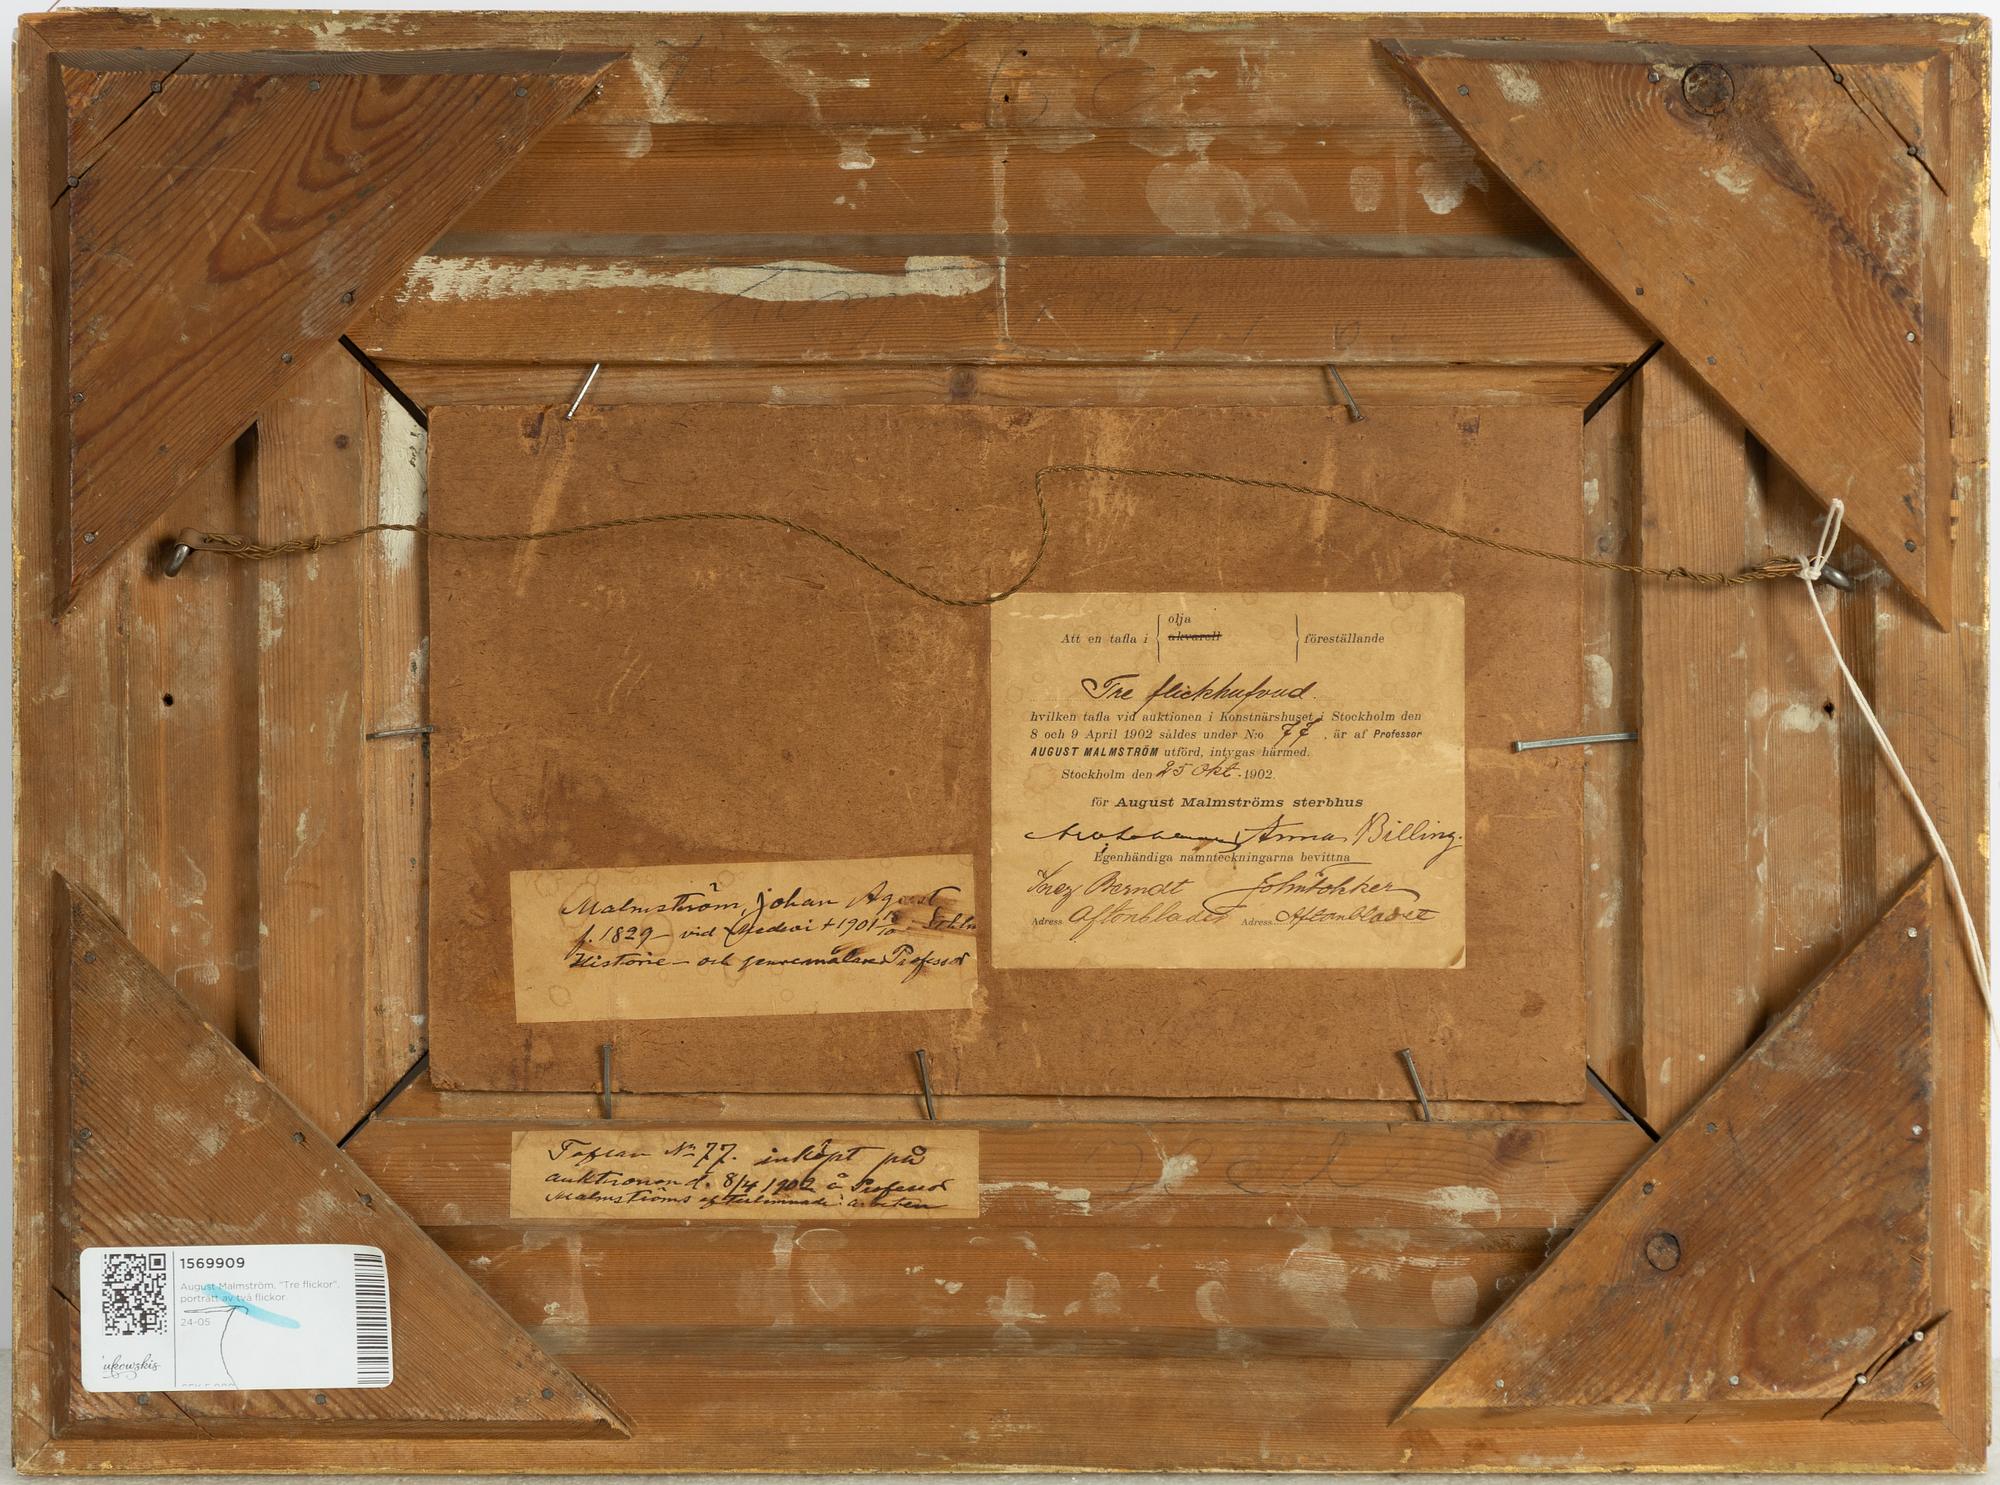 olja
Att en tafla i akvarell föreställande
Tre flickhufvud.
hvilken tafla vid auktionen i Konstnärshuset i Stockholm den
8 och 9 April 1902 såldes under N:o 77, är af Professor
AUGUST MALMSTRÖM utförd, intygas härmed.
Stockholm den 25 Okt. 1902.
för August Malmströms sterbhus
Anna Billing.
Egenhändiga namnteckningarna bevittna
Inez Berndt
Adress Aftonbladet Adress Aftonbladet
Malmström, Johan Agust
f. 1829 – vid Medevi + 1901 18/10 Sthlm
Historie – och genremålare Professor
Taflan No 77. inköpt på
auktionen d. 8/4 1902 å Professor
Malmströms efterlemnade arbeten
1569909
August Malmström, "Tre flickor",
porträtt av två flickor
24-05
ukowskis